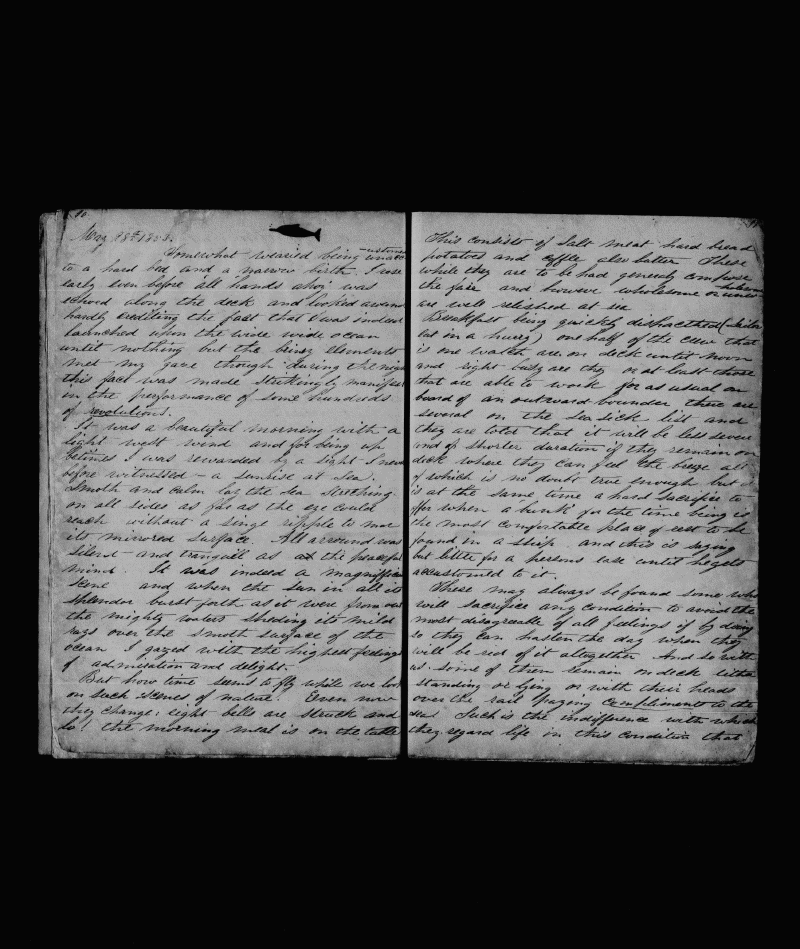 10
May 18th 1853.
Somewhat wearied being unac-customed
to a hard bed and a narrow birth I rose
early even before all hands ahoy was
echoed along the deck and looked around
hardly crediting the fact that I was indeed
launched upon the wide wide ocean
until nothing but the briny elements
met my gaze though during the night
this fact was made strikingly manifest
in the performance of some hundreds
of revolutions.
It was a beautiful morning with a
light west wind and for being up
betimes I was rewarded by a sight I never
before witnessed – a sunrise at sea.
Smoth and calm lay the sea streching
on all sides as far as the eye could
reach without a singl ripple to mar
its mirrored surface. All arround was
silent – and tranquil as at the peaceful
mind. It was indeed a magnificent
scene and when the sun in all its
splendor burst forth as it were from out
the mighty waters sheding its mild
rays over the smoth surface of the
ocean I gazed with the highest feelings
of admiration and delight.
But how time seems to fly while we look
on such scenes of nature. Even now
they change, eight bells are struck and
lo! the morning meal is on the table
This consists of Salt meat hard bread
potatoes and coffee also butter These
while they are to be had generely compose
the fare and however wholesome or unwholesome
are well relished at sea
Breakfast being quickly dishpacthed (Sailors
eat in a hurry) one half of the crew that
is one watch are on deck until noon
and right busy are they or at least those
that are able to work for as usual on
board of an outward bounder there are
several on the sea sick list and
they are toler that it will be less severe
and of shorter duration if they remain on
deck where they can feel the breeze all
of which is no doubt true enough but it
is at the same time a hard sacrifice to
offer when a bunk for the time being is
the most comfortable place of rest to be
found in a ship and this is saying
but little for a persons ease until he gets
accustomed to it.
These may always be found some who
will sacrifice any condition to avoid the
most disagreable of all feelings if by doing
so they can hasten the day when they
will be rid of it altogether And so with
us some of them remain on deck either
standing or lying or with their heads
over the rail paying Compliments to the
sea. Such is the indifference with which
they regard life in this condition that